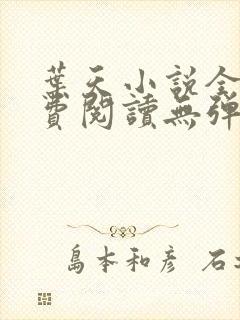 葉天小說全
費閱讀無彈
島本和彦 石